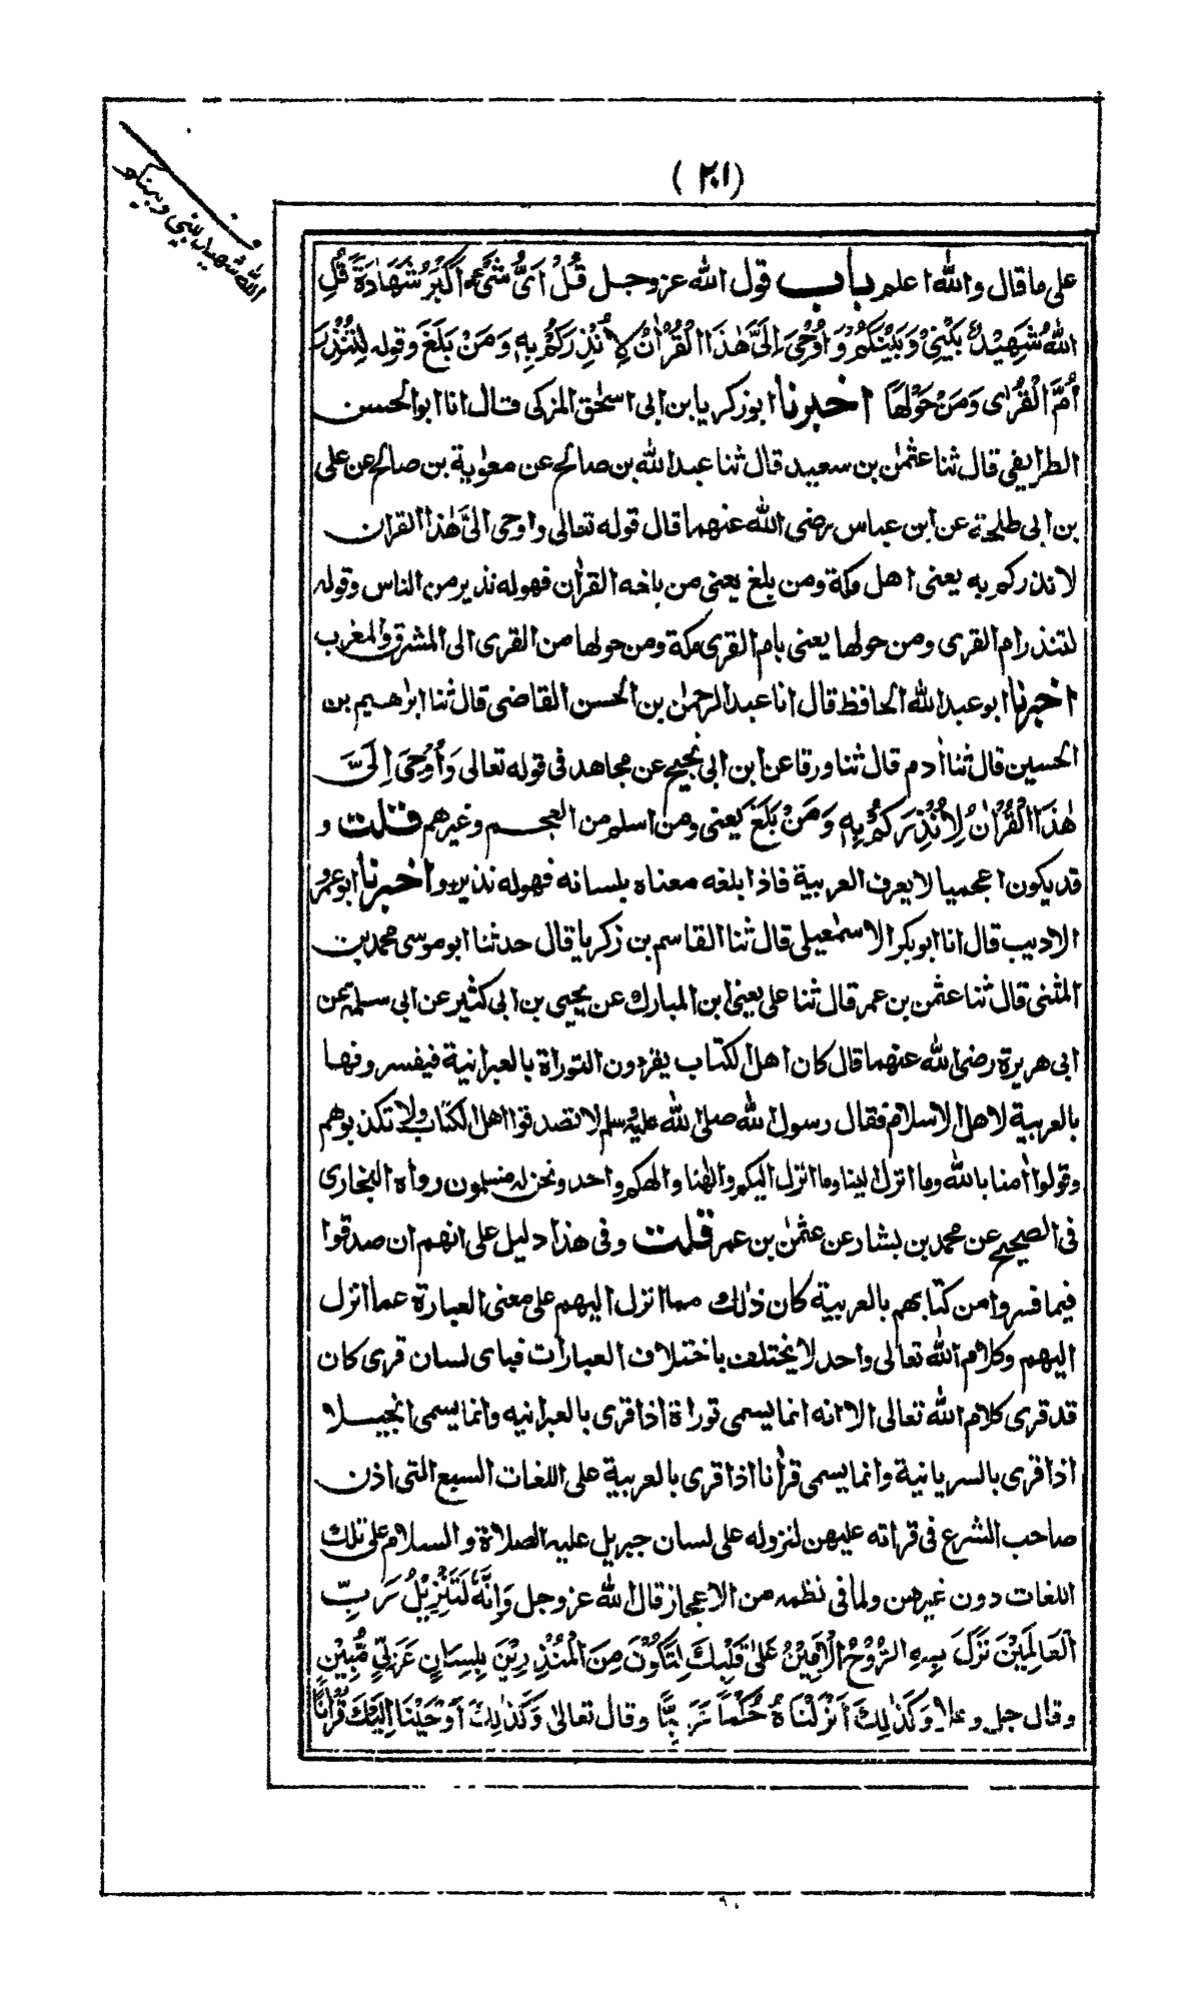 (٢٠١)
الله شهيد بيني وبينكم
على ما قال والله اعلم باب قول الله عزوجل قُلْ اَىُّ شَىْءٍ اَكْبَرُ شَهَادَةً قُلِ
اللهُ شَهِيْدٌ بَيْنِىْ وَبَيْنَكُمْ وَاُوْحِىَ اِلَىَّ هٰذَا الْقُرْاٰنُ لِاُنْذِرَكُمْ بِهٖ وَمَنْ بَلَغَ وقوله لِتُنْذِرَ
اُمَّ الْقُرٰى وَمَنْ حَوْلَهَا اخبرنا ابو زكريا بن ابى اسحٰق المزكى قال انا ابو الحسن
الطرايفى قال ثنا عثمٰن بن سعيد قال ثنا عبد الله بن صالح عن معٰوية بن صالح عن على
بن ابى طلحة عن ابن عباس رضى الله عنهما قال قوله تعالى واوحى الىَّ هٰذا القران
لانذركم به يعنى اهل مكة ومن بلغ يعنى من بلغه القراٰن فهو له نذير من الناس وقوله
لتنذر ام القرى ومن حولها يعنى بام القرى مكة ومن حولها من القرى الى المشرق والمغرب
اخبرنا ابو عبد الله الحافظ قال انا عبد الرحمٰن بن الحسن القاضى قال ثنا ابرٰهيم بن
الحسين قال ثنا اٰدم قال ثنا ورقا عن ابن ابى نجيح عن مجاهد فى قوله تعالى وَاُوْحِىَ اِلَىَّ
هٰذَا الْقُرْاٰنُ لِاُنْذِرَكُمْ بِهٖ وَمَنْ بَلَغَ يعنى ومن اسلم من العجم وغيرهم قلت و
قد يكون اعجميا لا يعرف العربية فاذا بلغه معناه بلسانه فهو له نذير واخبرنا ابو عمرو
الاديب قال انا ابو بكر الاسمٰعيلى قال ثنا القاسم بن زكريا قال حدثنا ابو موسى محمد بن
المثنى قال ثنا عثمٰن بن عمر قال ثنا على يعنى ابن المبارك عن يحيى بن ابى كثير عن ابى سلمة عن
ابى هريرة رضى الله عنهما قال كان اهل الكتاب يقرءون التوراة بالعبرانية فيفسرونها
بالعربية لاهل الاسلام فقال رسول الله صلى الله عليه وسلم لا تصدقوا اهل الكتاب ولا تكذبوهم
وقولوا اٰمنا بالله وما انزل الينا وما انزل اليكم والٰهنا والٰهكم واحد ونحن له مسلمون رواه البخارى
فى الصحيح عن محمد بن بشار عن عثمٰن بن عمر قلت وفى هذا دليل على انهم ان صدقوا
فيما فسروا من كتابهم بالعربية كان ذٰلك مما انزل اليهم على معنى العبارة عما انزل
اليهم وكلام الله تعالى واحد لا يختلف باختلاف العبارات فباى لسان قرى كان
قد قرى كلام الله تعالى الا انه انما يسمى توراة اذا قرى بالعبرانيه وانما يسمى انجيلا
اذا قرى بالسريانية وانما يسمى قراٰنا اذا قرى بالعربية على اللغات السبع التى اذن
صاحب الشرع فى قراته عليهن لنزوله على لسان جبريل عليه الصلاة والسلام على تلك
اللغات دون غيرهن ولما فى نظمه من الاعجاز قال الله عزوجل وَاِنَّهٗ لَتَنْزِيْلُ رَبِّ
الْعَالَمِيْنَ نَزَلَ بِهِ الرُّوْحُ الْاَمِيْنُ عَلٰى قَلْبِكَ لِتَكُوْنَ مِنَ الْمُنْذِرِيْنَ بِلِسَانٍ عَرَبِىٍّ مُّبِيْنٍ
وقال جل وعلا وَكَذٰلِكَ اَنْزَلْنَاهُ حُكْمًا عَرَبِيًّا وقال تعالىٰ وَكَذٰلِكَ اَوْحَيْنَا اِلَيْكَ قُرْاٰنًا